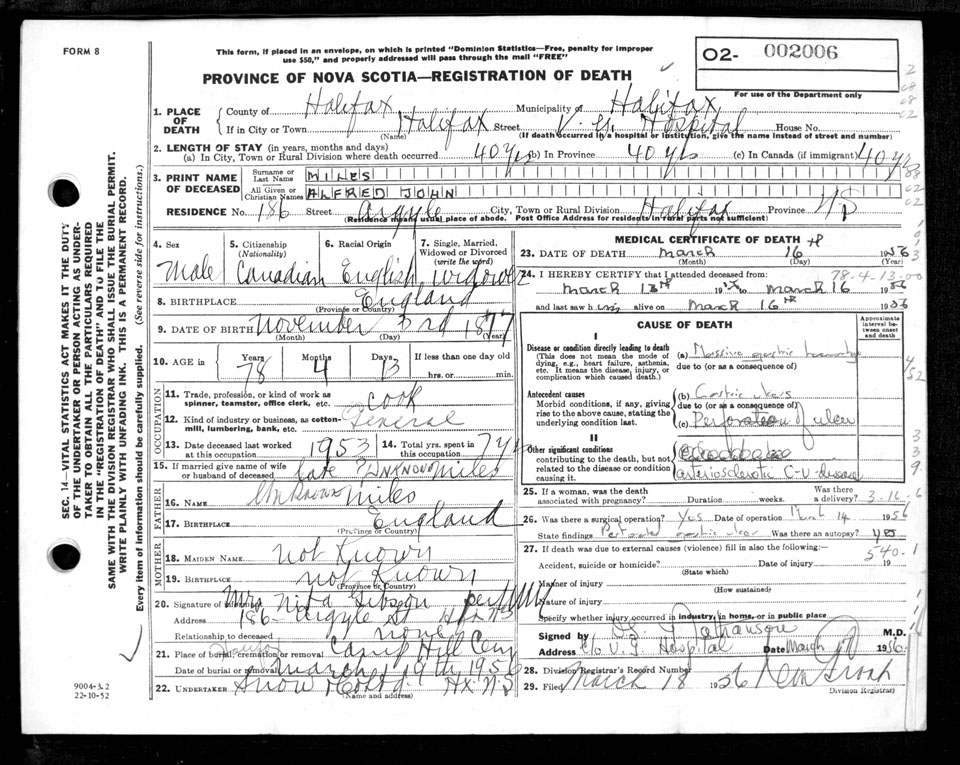 FORM 8
This form, if placed in an envelope, on which is printed "Dominion Statistics—Free, penalty for improper
use $50," and properly addressed will pass through the mail "FREE"
PROVINCE OF NOVA SCOTIA—REGISTRATION OF DEATH
O2- 002006
For use of the Department only
SEC. 14—VITAL STATISTICS ACT MAKES IT THE DUTY
OF THE UNDERTAKER OR PERSON ACTING AS UNDER-
TAKER TO OBTAIN ALL THE PARTICULARS REQUIRED
IN THE "REGISTRATION OF DEATH" AND TO FILE THE
SAME WITH THE DIVISION REGISTRAR WHO SHALL ISSUE THE BURIAL PERMIT.
WRITE PLAINLY WITH UNFADING INK. THIS IS A PERMANENT RECORD.
Every item of information should be carefully supplied. (See reverse side for instructions.)
1. PLACE OF DEATH
County of Halifax Municipality of Halifax
If in City or Town Halifax Street V. G. Hospital House No.
(Name) (If death occurred in a hospital or institution, give the name instead of street and number)
2. LENGTH OF STAY (in years, months and days)
(a) In City, Town or Rural Division where death occurred 40 yrs (b) In Province 40 yrs (c) In Canada (if immigrant) 40 yrs
3. PRINT NAME OF DECEASED
Surname or Last Name MILES
All Given or Christian Names ALFRED JOHN
RESIDENCE No. 186 Street Argyle City, Town or Rural Division Halifax Province NS
(Residence means usual place of abode. Post Office Address for residents in rural parts not sufficient)
4. Sex
Male
5. Citizenship
(Nationality)
Canadian
6. Racial Origin
English
7. Single, Married,
Widowed or Divorced
(write the word)
widower
8. BIRTHPLACE England
(Province or Country)
9. DATE OF BIRTH November 3rd 1877
(Month) (Day) (Year)
10. AGE in Years 78 Months 4 Days 13 If less than one day old
hrs. or min.
OCCUPATION
11. Trade, profession, or kind of work as
spinner, teamster, office clerk, etc. Cook
12. Kind of industry or business, as cotton-
mill, lumbering, bank, etc. General
13. Date deceased last worked
at this occupation 1953
14. Total yrs. spent in
this occupation
15. If married give name of wife
or husband of deceased late ? UNKNOWN Miles
FATHER
16. NAME Unknown Miles
17. BIRTHPLACE England
(Province or Country)
MOTHER
18. MAIDEN NAME Not Known
19. BIRTHPLACE not Known
(Province or Country)
20. Signature of informant Mrs Nita Gibson
Address 186 Argyle St Hfx NS
Relationship to deceased none
21. Place of burial, cremation or removal Camp Hill Cem
Date of burial or removal March 19th 1956
22. UNDERTAKER Snow & Co Ltd Hx N.S
9004-3.2
22-10-52
MEDICAL CERTIFICATE OF DEATH
23. DATE OF DEATH March 16 1956
(Month) (Day) (Year)
24. I HEREBY CERTIFY that I attended deceased from: 78-4-13-00
March 13th 19 to March 16 1956
and last saw h im alive on March 16th 1956
CAUSE OF DEATH
Approximate
interval be-
tween onset
and death
I
Disease or condition directly leading to death
(This does not mean the mode of
dying, e.g., heart failure, asthenia,
etc. It means the disease, injury, or
complication which caused death.)
(a) Massive gastric
due to (or as a consequence of)
Antecedent causes
Morbid conditions, if any, giving
rise to the above cause, stating the
underlying condition last.
(b) Gastric ulcers
due to (or as a consequence of)
(c) Perforation of ulcer
II
Other significant conditions
contributing to the death, but not
related to the disease or condition
causing it.
arteriosclerotic C-V disease
25. If a woman, was the death
associated with pregnancy? Duration weeks. Was there
a delivery? 3-16-6
26. Was there a surgical operation? Yes Date of operation 14 1956
State findings Perforated gastric ulcer Was there an autopsy? yes
27. If death was due to external causes (violence) fill in also the following:— 540.1
Accident, suicide or homicide? Date of injury 19
(State which)
Manner of injury
(How sustained)
Nature of injury
Specify whether injury occurred in industry, in home, or in public place
Signed by M.D.
Address c/o V.G. Hospital Date March 1956
28. Division Registrar's Record Number
29. Filed March 18 1956
Division Registrar